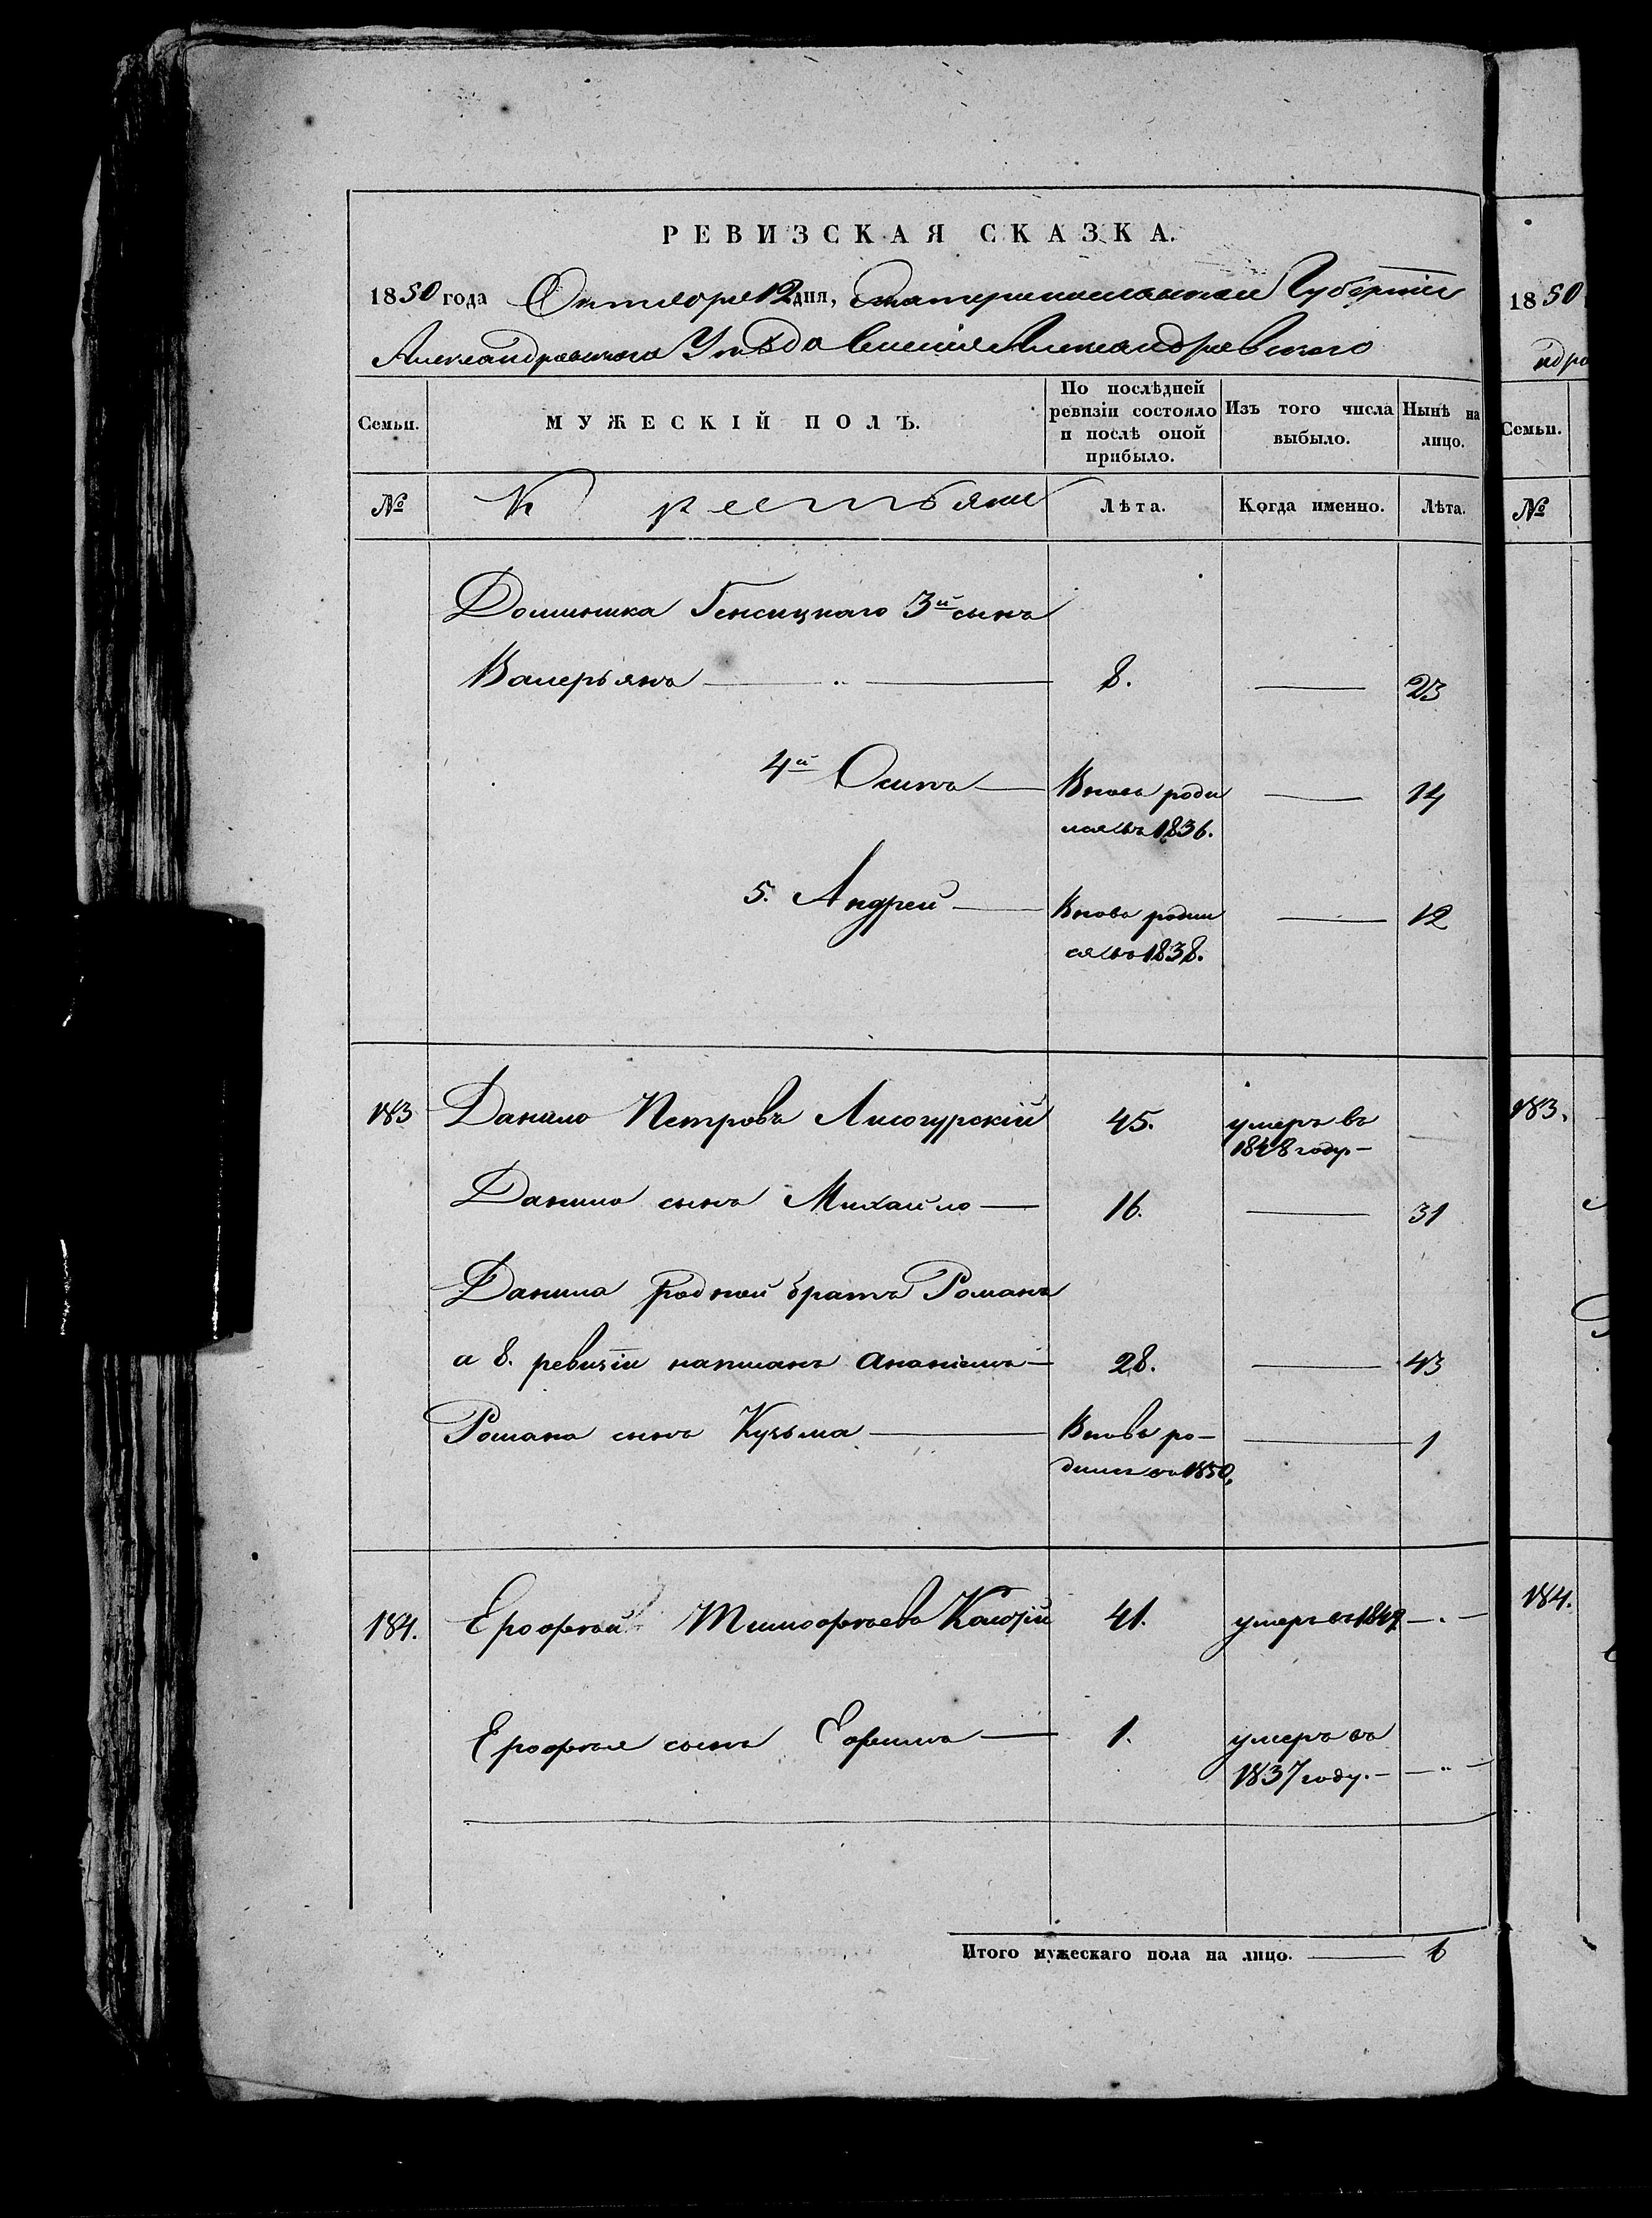 РЕВИЗСКАЯ СКАЗКА.
1850 года Октября 12 дня, Екатеринославской Губерніи
Александровского Уѣзда Александровского
Семьи. МУЖЕСКІЙ ПОЛЪ. По послѣдней ревизіи состояло и послѣ оной прибыло. Изъ того числа выбыло. Нынѣ на лицо.
№ Крестьяне Лѣта. Когда именно. Лѣта.
Доминика Генсицкаго 3й сынъ
Валерьянъ 8. 23
4й Осипъ Вновь роди 14
лся въ 1836.
5. Андрей Вновь родил 12
ся въ 1838.
183 Данило Петровъ Лисогурскій 45. умеръ въ
1848 году
Данила сынъ Михайло 16. 31
Данила родной братъ Романъ
а 8. ревизіи написанъ Ананіемъ 28. 43
Романа сынъ Кузьма Вновь ро- 1
дился въ 1850.
184. Ерофѣй Тимофѣевъ 41. умеръ въ 1849
Ерофѣя сынъ Ефимъ 1. умеръ въ
1837 году.
Итого мужескаго пола на лицо. 6
1850
ндро
Семьи.
№
183.
184.